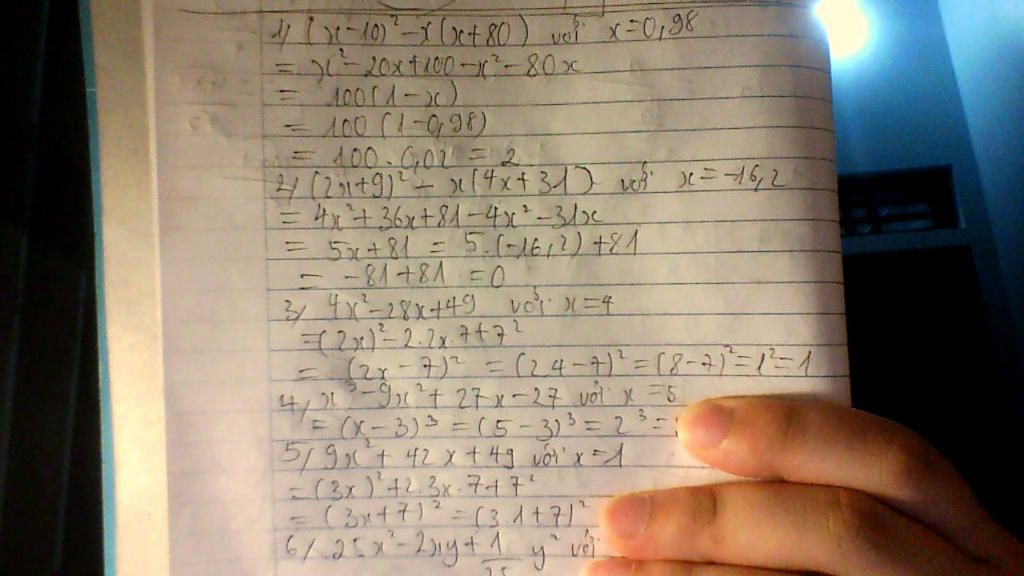 1) (x-10)² - x(x+80) với x=0,98
= x² - 20x+100 - x² - 80x
= 100(1-x)
= 100(1-0,98)
= 100.0,02 = 2
2) (2x+9)² - x(4x+31) với x = -16,2
= 4x²+36x+81-4x²-31x
= 5x+81 = 5.(-16,2)+81
= -81+81 = 0
3) 4x²-28x+49 với x=4
=(2x)²-2.2x.7+7²
= (2x-7)² = (2.4-7)² = (8-7)²=1²=1
4) x³-9x²+27x-27 với x=5
= (x-3)³ = (5-3)³ = 2³ =
5) 9x²+42x+49 với x=1
= (3x)²+2.3x.7+7²
= (3x+7)² = (3.1+7)²
6) 25x²-2xy+1/25 y² với